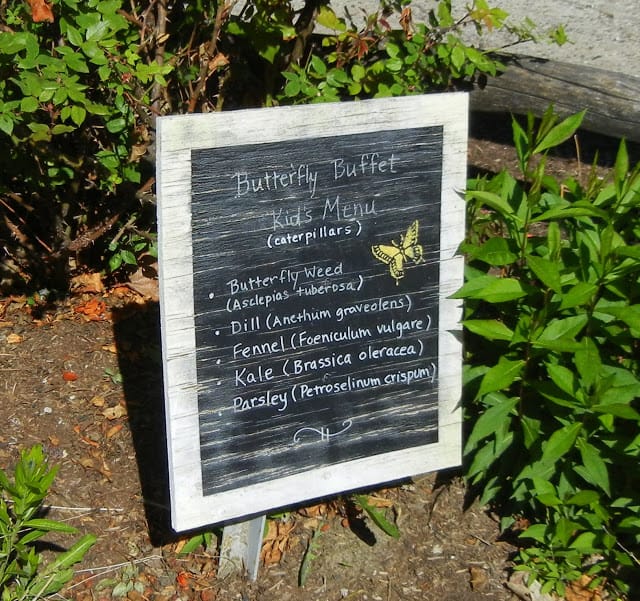 Butterfly Buffet
Kid's Menu
(caterpillars)
• Butterfly Weed
(Asclepias tuberosa)
• Dill (Anethum graveolens)
• Fennel (Foeniculum vulgare)
• Kale (Brassica oleracea)
• Parsley (Petroselinum crispum)